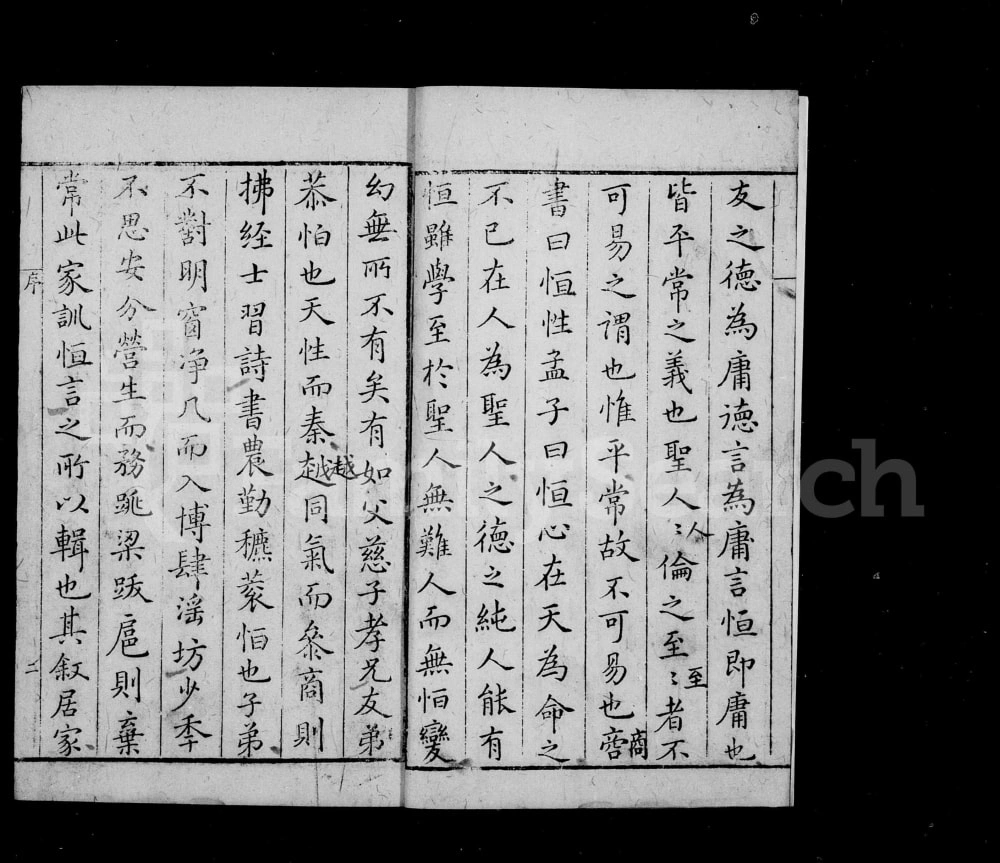 友之德為庸德言為庸言恒即庸也
皆平常之義也聖人〻倫之至〻者不
人
至
可易之謂也惟平常故不可易也啇
商
書曰恒性孟子曰恒心在天為命之
不已在人為聖人之德之純人能有
恒雖學至於聖人無難人而無恒變
幻無所不有矣有如父慈子孝兄友弟
恭恒也天性而秦越同氣而叅商則
越
拂経士習詩書農勤穮蓘恒也子弟
不對明窗净几而入博肆滛坊少年
不思安分營生而務跳梁跋扈則棄
常此家訓恒言之所以輯也其叙居家
序
二